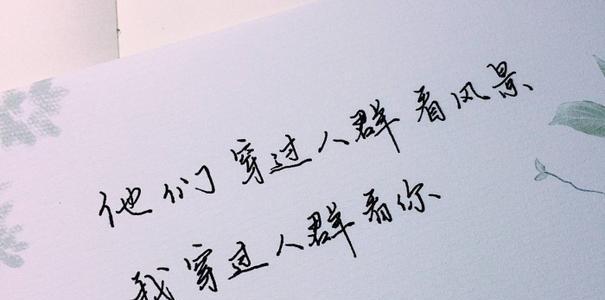 他们穿过人群看风景
我穿过人群看你